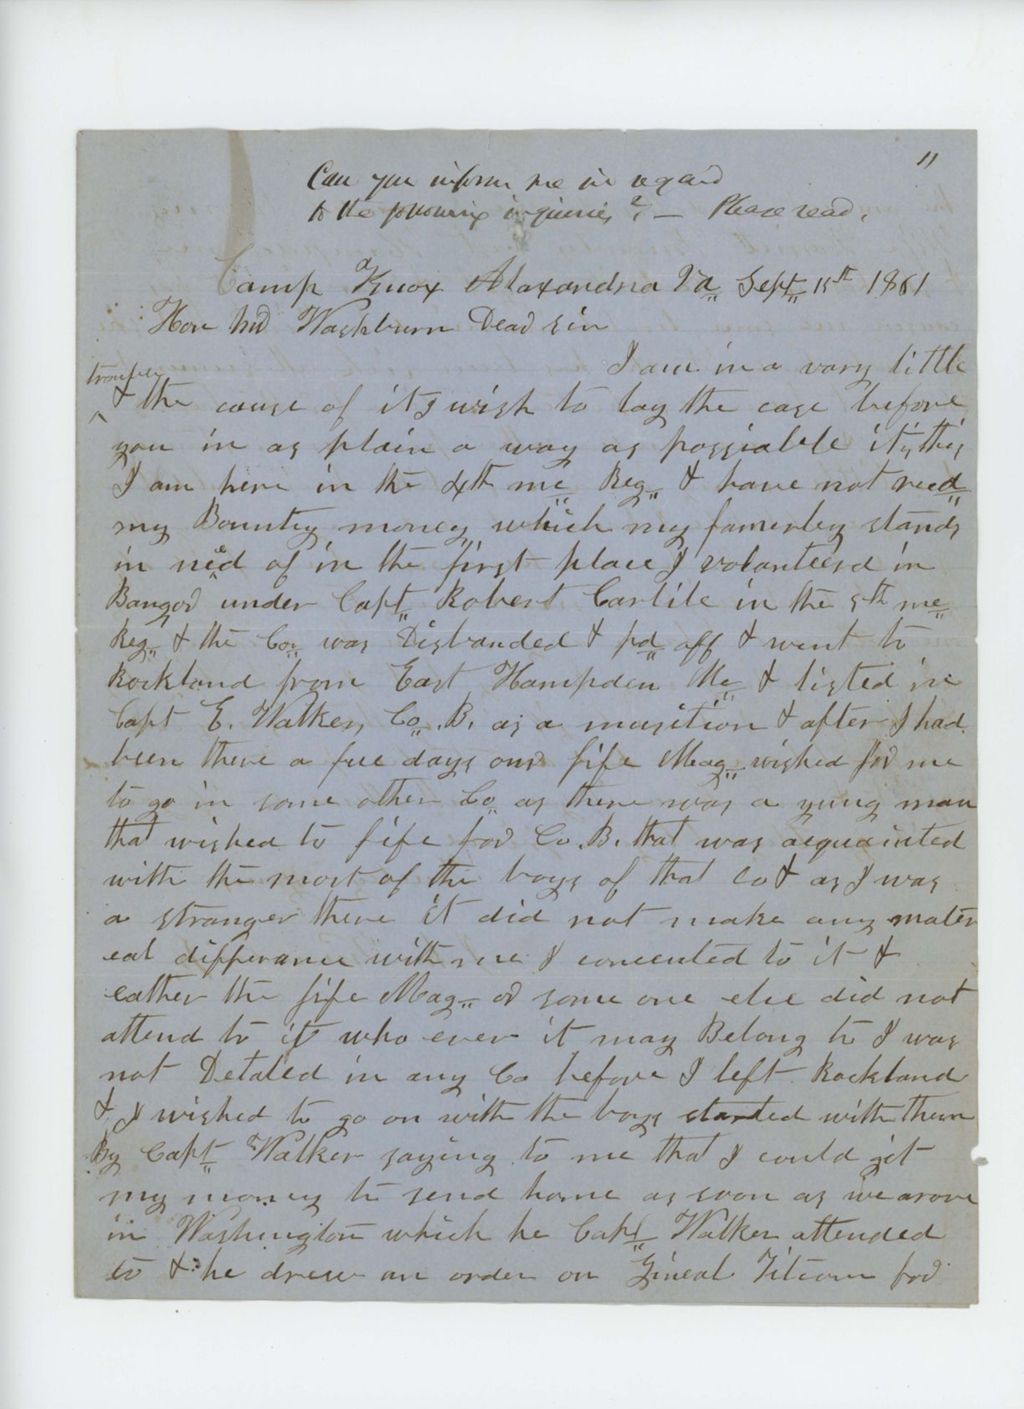 "
Can you inform me in regard
to the following inquiries? — Please read,
Camp Knox Alexandria Va Sept 15th 1861
Hon Washburn Dead sir
I am in a vary little
trouble
& the cause of it I wish to lay the case before
you in as plain a way as possiable it is this
I am here in the 4th me Reg & have not recd
my Bountey money which my famerley stands
in need of in the first place I volanteerd in
Bangor under Capt Robert Carlile in the 5th me
Reg & the Co was Disbanded & pd off & went to
Rockland from East Hampden Me & listed in
Capt E. Walker, Co. B. as a musition & after I had
been there a fue days our fife Mag wished for me
to go in some other Co as there was a yung man
that wished to fife for Co. B. that was acquainted
with the most of the boys of that Co & as I was
a stranger there it did not make any mater
eal differance with me I concented to it &
eather the fife Mag or some one else did not
attend to it who ever it may Belong to I was
not Detaled in any Co before I left Rockland
& I wished to go on with the boys started with them
By Capt Walker saying to me that I could git
my money to send home as soon as we arove
in Washington which he Capt Walker attended
to & he drew an order on Gineal Titcom for